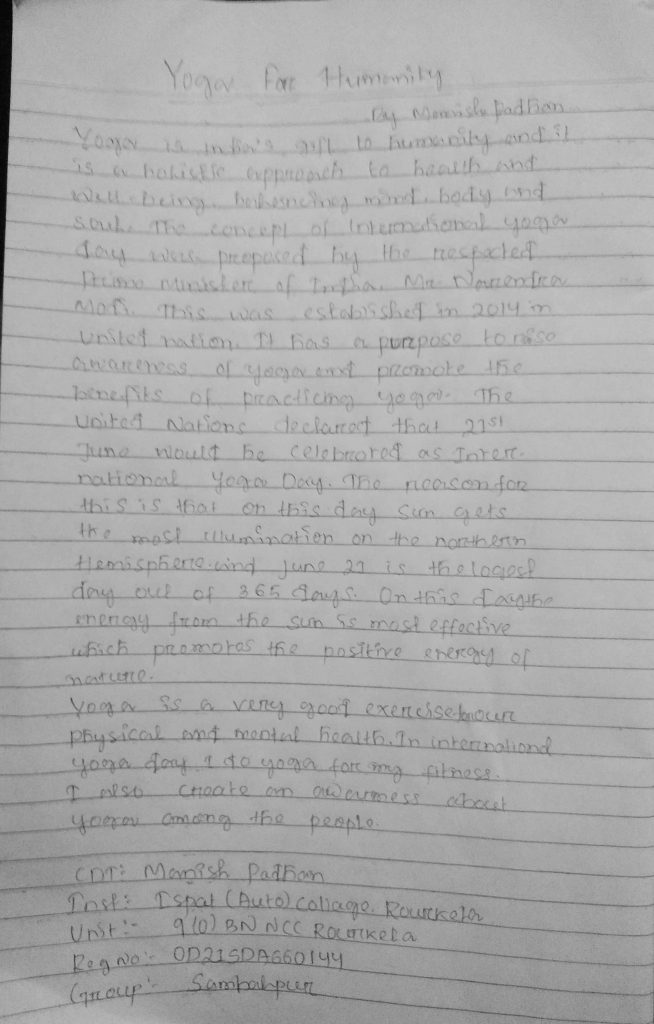 Yoga For Humanity
By Manish Padhan
Yoga is India's gift to humanity and it
is a holistic approach to health and
well-being, balancing mind, body and
soul. The concept of International yoga
day was proposed by the respected
Prime Minister of India, Mr Narendra
Modi. This was established in 2014 in
united nation. It has a purpose to
awareness of yoga and promote the
benefits of practicing yoga. The
United Nations declared that 21st
June would be celebrated as Inter-
national Yoga Day. The reason for
this is that on this day sun gets
the most illumination on the northern
Hemisphere and june 21 is the logest
day out of 365 days. On this day the
energy from the sun is most effective
which promotes the positive energy of
nature.
Yoga is a very good exercise our
physical and mental health. In international
yoga day I do yoga for my fitness.
I also create an awarness about
yoga among the people.
CDT: Manish Padhan
Inst: Ispat (Auto) collage, Rourkela
Unit:- 9 (O) BN NCC Rourkela
Reg No:- OD21SDA660144
Group:- Sambalpur